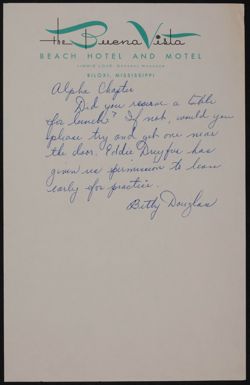 the Buena Vista
BEACH HOTEL AND MOTEL
JIMMIE LOVE, GENERAL MANAGER
BILOXI, MISSISSIPPI
Alpha Chapter
Did you reserve a table
for lunch? If not, would you
please try and get one near
the door. Eddie Dreyfus has
given us permission to leave
early for practice.
Betty Douglas